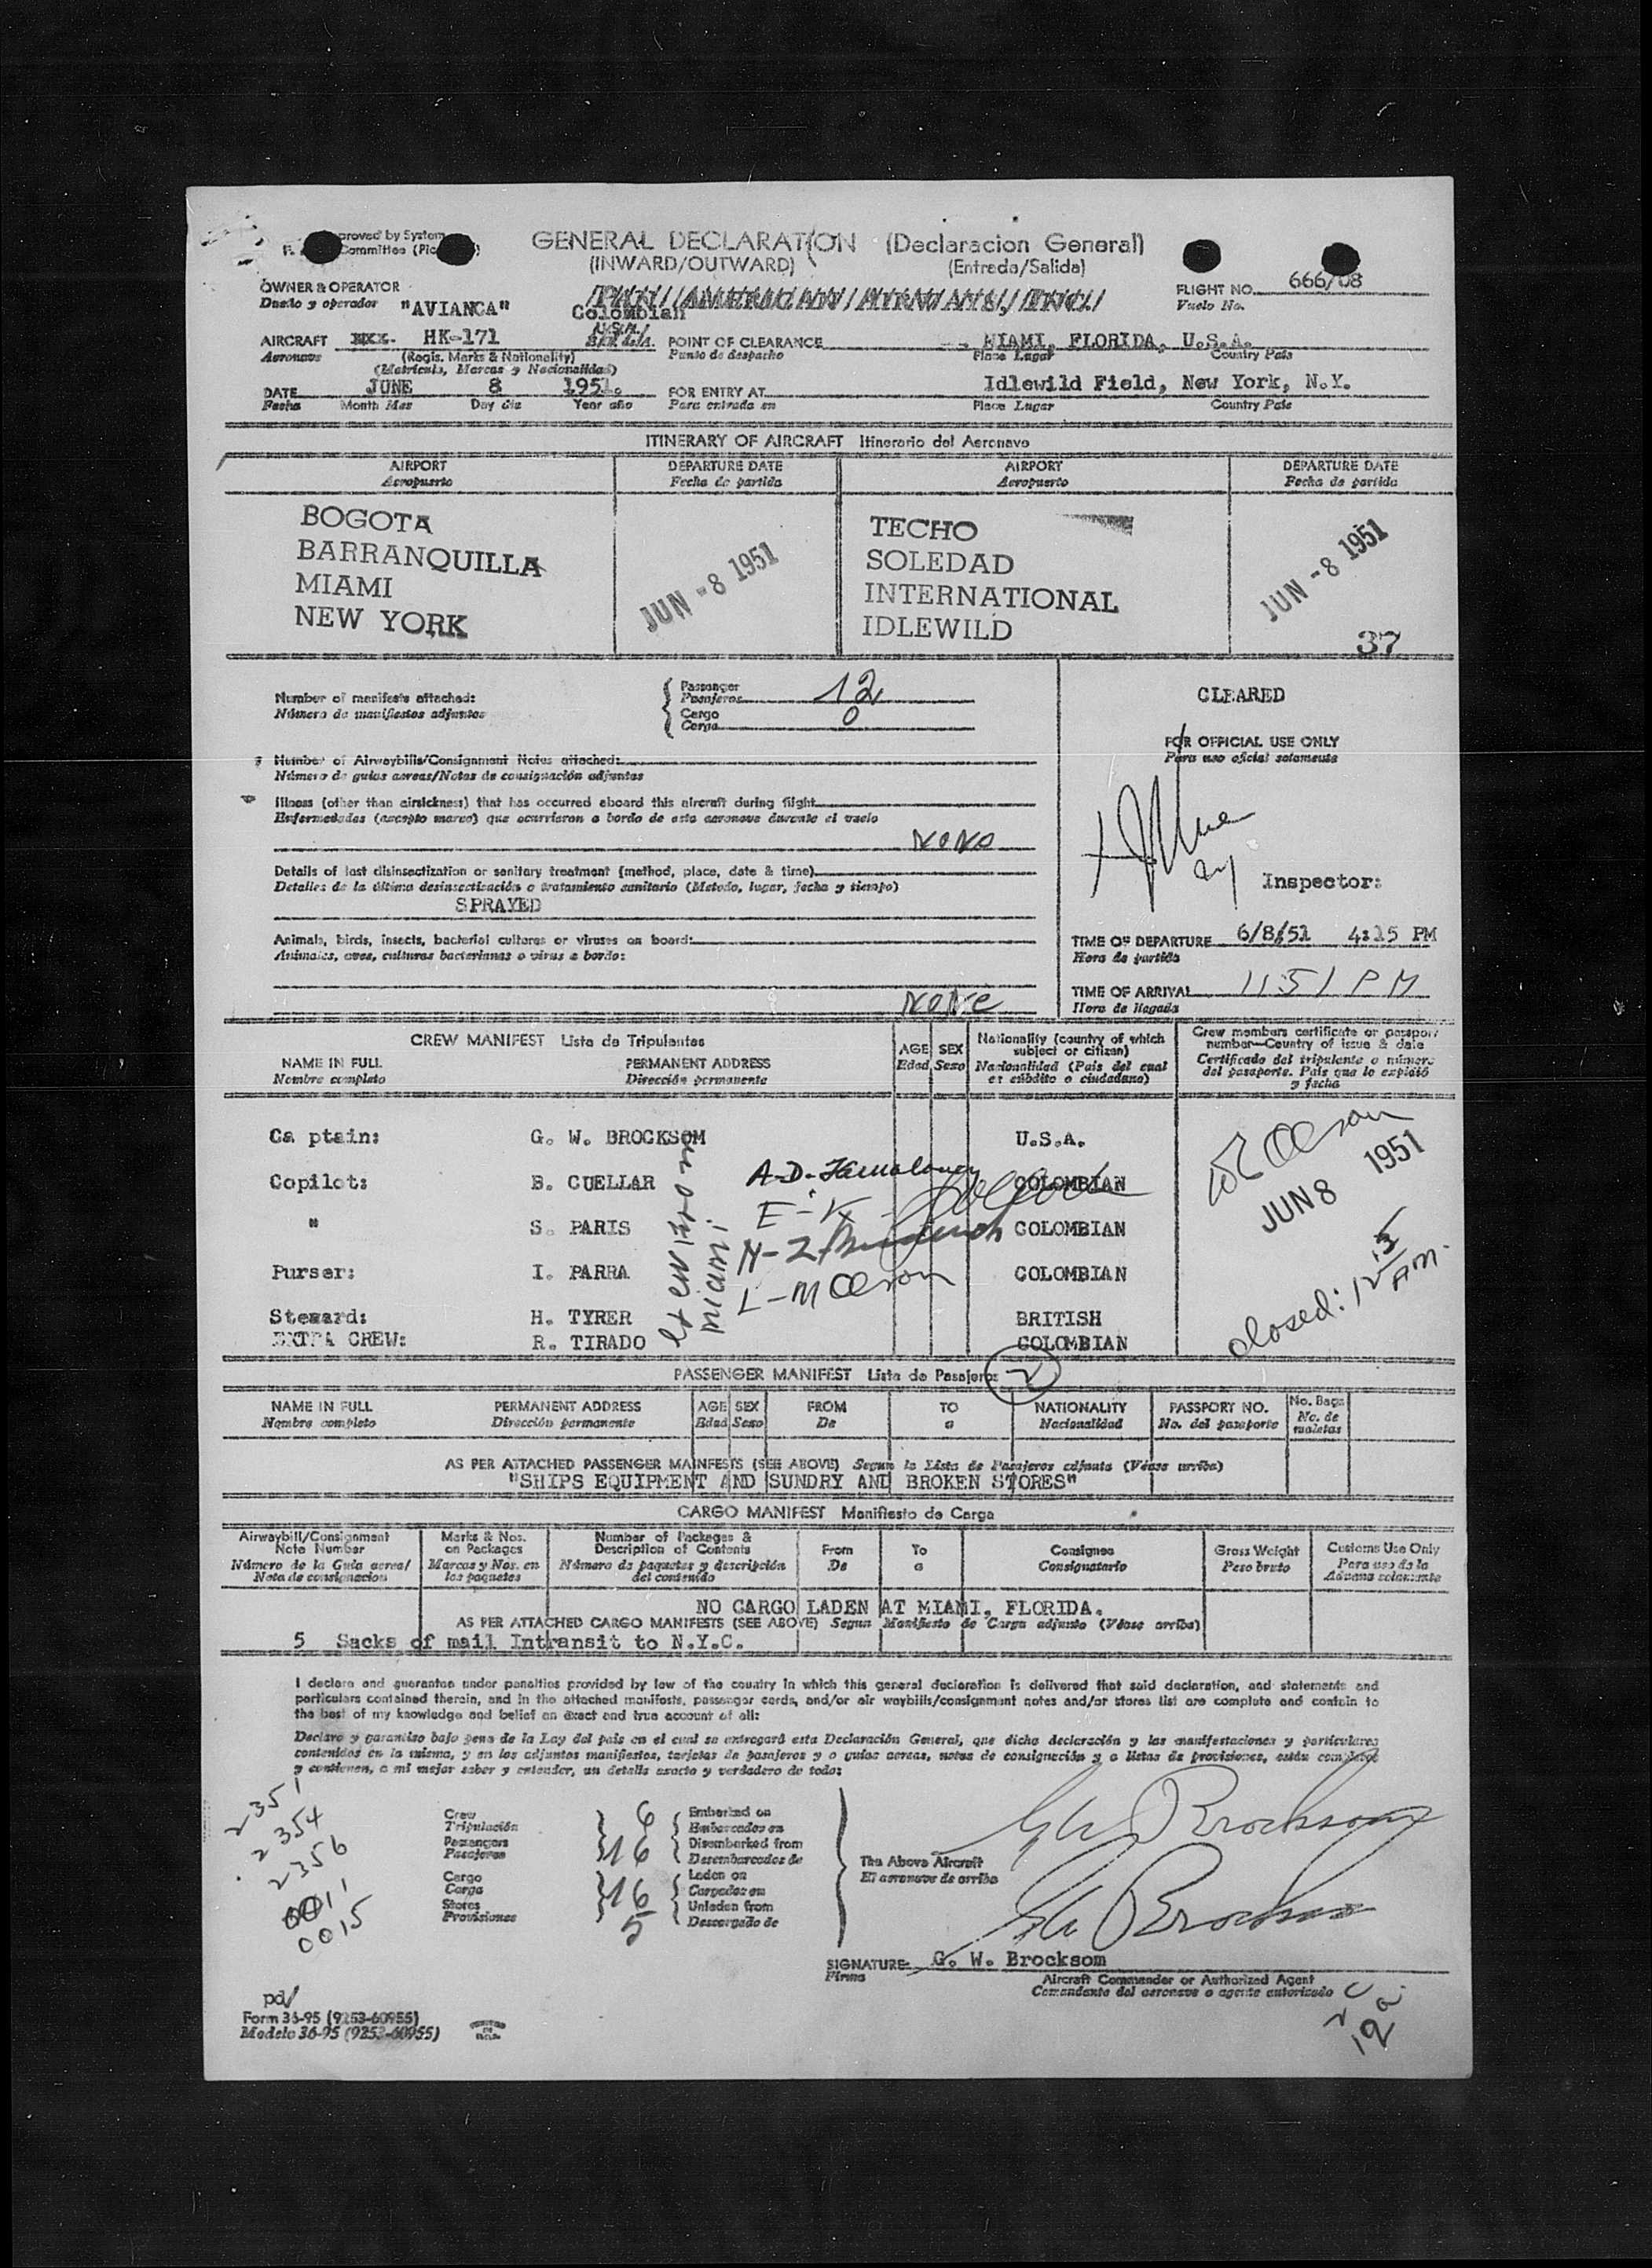 proved by System
Committee (Pic
GENERAL DECLARATION (Declaracion General)
(INWARD/OUTWARD) (Entrada/Salida)
OWNER & OPERATOR
Dueño y operador "AVIANCA"
FLIGHT NO. 666/08
Vuelo No.
Colombian
AIRCRAFT HK-171
Aeronave (Regis. Marks & Nationality)
(Matricula, Marcas y Nacionalidad)
POINT OF CLEARANCE MIAMI, FLORIDA, U.S.A.
Punto de despacho Place Lugar Country Pais
DATE JUNE 8 1951.
Fecha Month Mes Day dia Year año
FOR ENTRY AT Idlewild Field, New York, N.Y.
Para entrada en Place Lugar Country Pais
ITINERARY OF AIRCRAFT Itinerario del Aeronave
AIRPORT DEPARTURE DATE AIRPORT DEPARTURE DATE
Aeropuerto Fecha de partida Aeropuerto Fecha de partida
BOGOTA TECHO
BARRANQUILLA SOLEDAD
MIAMI INTERNATIONAL
NEW YORK IDLEWILD
JUN -8 1951 JUN -8 1951
37
Number of manifests attached:
Número de manifiestos adjuntos
Passenger
Pasajeros 12
Cargo 0
Carga
CLEARED
FOR OFFICIAL USE ONLY
Para uso oficial solamente
Number of Airwaybills/Consignment Notes attached:
Número de guias aereas/Notas de consignación adjuntas
Illness (other than airsickness) that has occurred aboard this aircraft during flight
Enfermedades (excepto mareo) que ocurrieron a bordo de esta aeronave durante el vuelo
NONE
Details of last disinsectization or sanitary treatment (method, place, date & time)
Detalles de la última desinsectización o tratamiento sanitario (Metodo, lugar, fecha y tiempo)
SPRAYED
Inspector:
Animals, birds, insects, bacterial cultures or viruses on board:
Animales, aves, culturas bacterianas o virus a bordo:
NONE
TIME OF DEPARTURE 6/8/51 4:15 PM
Hora de partida
TIME OF ARRIVAL 11:51 PM
Hora de llegada
CREW MANIFEST Lista de Tripulantes
NAME IN FULL PERMANENT ADDRESS
Nombre completo Dirección permanente
AGE SEX
Edad Sexo
Nationality (country of which
subject or citizen)
Nacionalidad (Pais del cual
es súbdito o ciudadano)
Crew members certificate or passport
number—Country of issue & date
Certificado del tripulante o número
del pasaporte. Pais que lo expidió
y fecha
Captain: G. W. BROCKSOM U.S.A.
Copilot: B. CUELLAR COLOMBIAN
" S. PARIS COLOMBIAN
Purser: I. PARRA COLOMBIAN
Steward: H. TYRER BRITISH
EXTRA CREW: R. TIRADO COLOMBIAN
miami
L-M Olson
Olson
JUN 8 1951
closed: 12 15 AM.
PASSENGER MANIFEST Lista de Pasajeros 2
NAME IN FULL PERMANENT ADDRESS AGE SEX FROM TO NATIONALITY PASSPORT NO. No. Bags
Nombre completo Dirección permanente Edad Sexo De a Nacionalidad No. del pasaporte No. de maletas
AS PER ATTACHED PASSENGER MAINFESTS (SEE ABOVE) Segun la Lista de Pasajeros adjunta (Véase arriba)
"SHIPS EQUIPMENT AND SUNDRY AND BROKEN STORES"
CARGO MANIFEST Manifiesto de Carga
Airwaybill/Consignment
Note Number
Número de la Guía aerea/
Nota de consignacion
Marks & Nos.
on Packages
Marcas y Nos. en
los paquetes
Number of Packages &
Description of Contents
Número de paquetes y descripción
del contenido
From
De
To
a
Consignee
Consignatario
Gross Weight
Peso bruto
Customs Use Only
Para uso de la
Aduana solamente
NO CARGO LADEN AT MIAMI, FLORIDA.
AS PER ATTACHED CARGO MANIFESTS (SEE ABOVE) Segun Manifiesto de Carga adjunto (Véase arriba)
5 Sacks of mail Intransit to N.Y.C.
I declare and guarantee under penalties provided by law of the country in which this general declaration is delivered that said declaration, and statements and
particulars contained therein, and in the attached manifests, passenger cards, and/or air waybills/consignment notes and/or stores list are complete and contain to
the best of my knowledge and belief an exact and true account of all:
Declaro y garantizo bajo pena de la Ley del pais en el cual se entregará esta Declaración General, que dicha declaración y las manifestaciones y particulares
contenidos en la misma, y en los adjuntos manifiestos, tarjetas de pasajeros y o guías aereas, notas de consignación y o listas de provisiones, están completos
y contienen, a mi mejor saber y entender, un detalle exacto y verdadero de todo:
2351
2354
2356
0011
0015
Crew 6 Embarked on
Tripulación Embarcados en
Passengers 16 Disembarked from
Pasajeros Desembarcados de
Cargo 16 Laden on
Carga Cargados en
Stores 5 Unladen from
Provisiones Descargado de
The Above Aircraft
El aeronave de arriba
GW Brocksom
GW Brocksom
SIGNATURE: G. W. Brocksom
Firma
Aircraft Commander or Authorized Agent
Comandante del aeronave o agente autorizado
pd
Form 36-95 (9253-60955)
Modelo 36-95 (9253-60955)